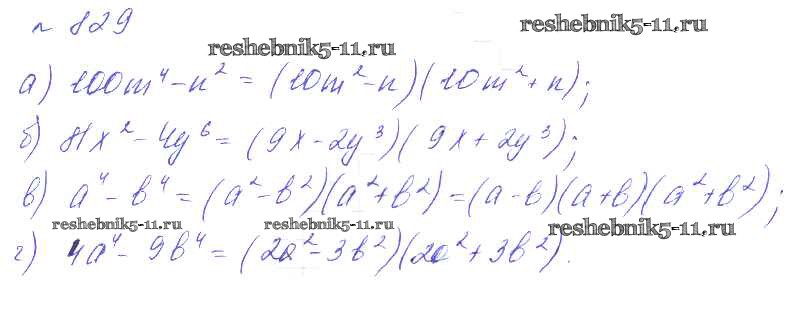 № 829
reshebnik5-11.ru
reshebnik5-11.ru
а) 100m⁴ - n² = (10m² - n)(10m² + n);
б) 81x² - 4y⁶ = (9x - 2y³)(9x + 2y³);
в) a⁴ - b⁴ = (a² - b²)(a² + b²) = (a - b)(a + b)(a² + b²);
reshebnik5-11.ru reshebnik5-11.ru reshebnik5-11.ru
г) 4a⁴ - 9b⁴ = (2a² - 3b²)(2a² + 3b²).